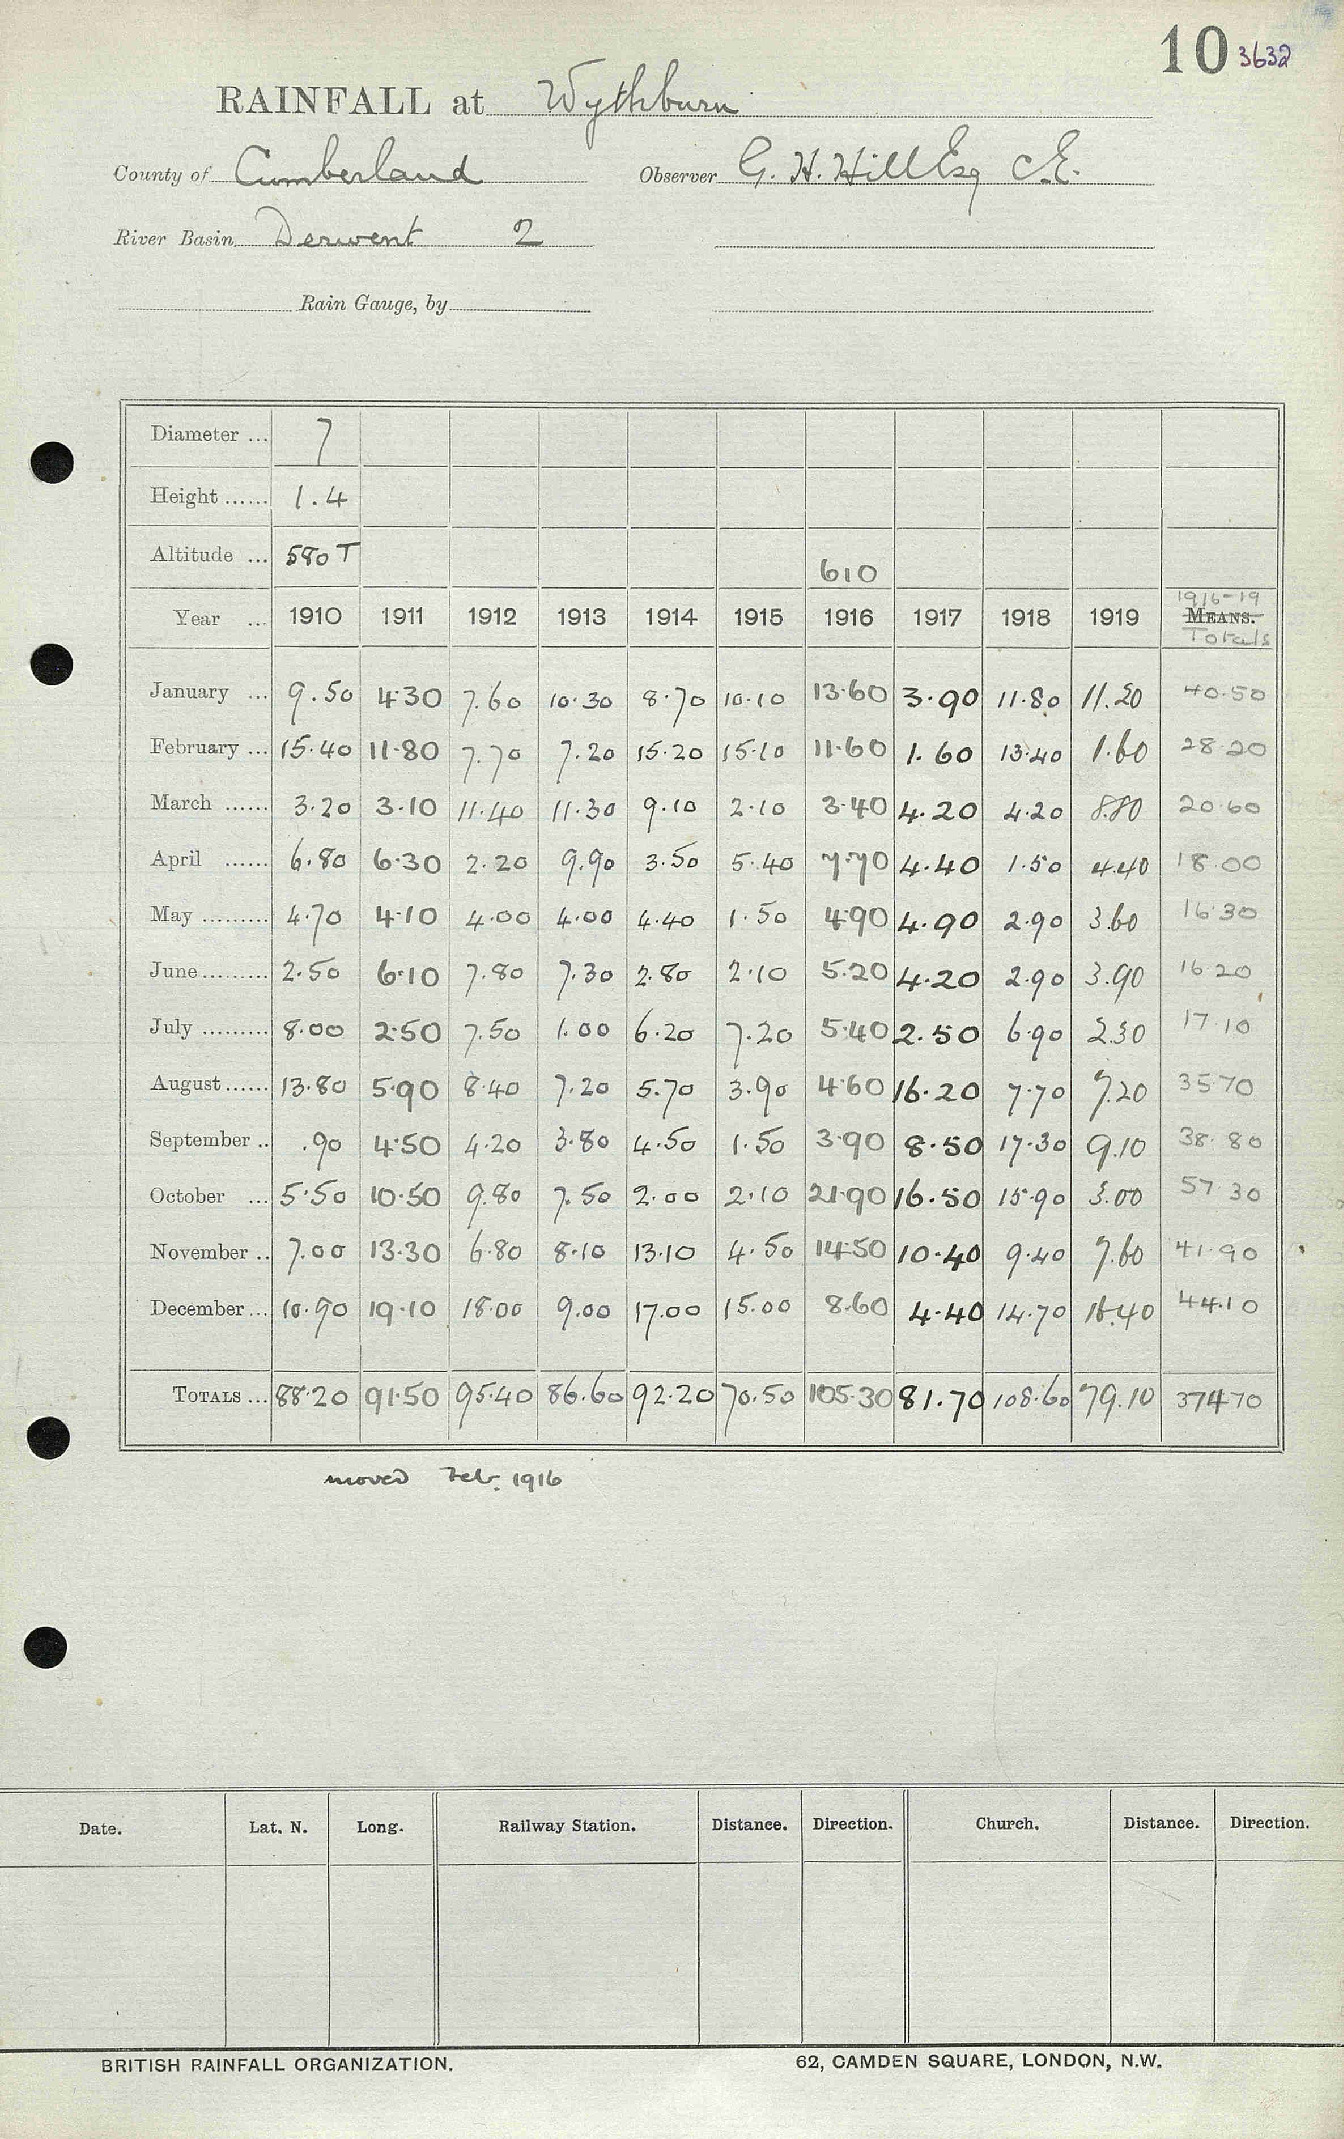 10 3632
RAINFALL at Wythburn
County of Cumberland Observer G. H. Hill Esq C.E.
River Basin Derwent 2
Rain Gauge, by
Diameter ... 7
Height ...... 1.4
Altitude ... 580 T 610
Year ... 1910 1911 1912 1913 1914 1915 1916 1917 1918 1919 1916-19 MEANS. Totals
January ... 9.50 4.30 7.60 10.30 8.70 10.10 13.60 3.90 11.80 11.20 40.50
February ... 15.40 11.80 7.70 7.20 15.20 15.10 11.60 1.60 13.40 1.60 28.20
March ...... 3.20 3.10 11.40 11.30 9.10 2.10 3.40 4.20 4.20 8.80 20.60
April ...... 6.80 6.30 2.20 9.90 3.50 5.40 7.70 4.40 1.50 4.40 18.00
May ......... 4.70 4.10 4.00 4.00 4.40 1.50 4.90 4.90 2.90 3.60 16.30
June ......... 2.50 6.10 7.80 7.30 2.80 2.10 5.20 4.20 2.90 3.90 16.20
July ......... 8.00 2.50 7.50 1.00 6.20 7.20 5.40 2.50 6.90 2.30 17.10
August ...... 13.80 5.90 8.40 7.20 5.70 3.90 4.60 16.20 7.70 7.20 35.70
September .. .90 4.50 4.20 3.80 4.50 1.50 3.90 8.50 17.30 9.10 38.80
October ... 5.50 10.50 9.80 7.50 2.00 2.10 21.90 16.50 15.90 3.00 57.30
November .. 7.00 13.30 6.80 8.10 13.10 4.50 14.50 10.40 9.40 7.60 41.90
December ... 10.90 19.10 18.00 9.00 17.00 15.00 8.60 4.40 14.70 16.40 44.10
TOTALS ... 88.20 91.50 95.40 86.60 92.20 70.50 105.30 81.70 108.60 79.10 374.70
moved Feb. 1916
Date. Lat. N. Long. Railway Station. Distance. Direction. Church. Distance. Direction.
BRITISH RAINFALL ORGANIZATION. 62, CAMDEN SQUARE, LONDON, N.W.